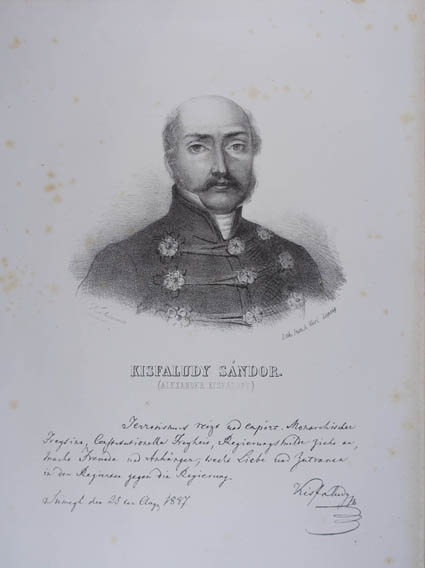 KISFALUDY SÁNDOR.
(ALEXANDER KISFALUDY)
Terrorismus reizt und empört. Monarchischer
Freysinn, Confessionelle Freyheit, Regierungsmilde ziehe an,
macht Freunde und Anhänger; weckt Liebe und Zutrauen
in den Regierten gegen die Regierung.
Sümegh den 25ten Aug. 18
Kisfaludy